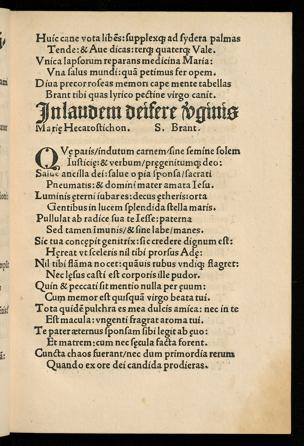 Huic cane vota libẽs: supplexq; ad sydera palmas
Tende: & Aue dicas: terq; quaterq; Vale.
Vnica lapsorum reparans medicina Maria:
Vna salus mundi: quã petimus fer opem.
Diua precor roseas memori cape mente tabellas
Brant tibi quas lyrico pectine virgo canit.
In laudem deifere v̓ginis
Marię Hecatostichon. S. Brant.
QVę paris/indutum carnem/sine semine solem
Iusticię: & verbum/pręgenitumq; deo:
Salue ancilla dei: salue o pia sponsa/sacrati
Pneumatis: & domini mater amata Iesu.
Luminis ęterni iubares: decus ętheris: orta
Gentibus in lucem splendida stella maris.
Pullulat ab radice sua te Iesse: paterna
Sed tamen imunis/& sine labe/manes.
Sic tua concepit genitrix: sic credere dignum est:
Hęreat vt sceleris nil tibi prorsus Adę:
Nil tibi flãma nocet: quãuis rubus vndiq; flagret:
Nec lęsus casti est corporis ille pudor.
Quin & peccati sit mentio nulla per ęuum:
Cum memor est quisquã virgo beata tui.
Tota quidẽ pulchra es mea dulcis amica: nec in te
Est macula: vngenti fragrat aroma tui.
Te pater æternus sponsam sibi legit ab ęuo:
Et matrem: cum nec sęcula facta forent.
Cuncta chaos fuerant/nec dum primordia rerum
Quando ex ore dei candida prodieras.